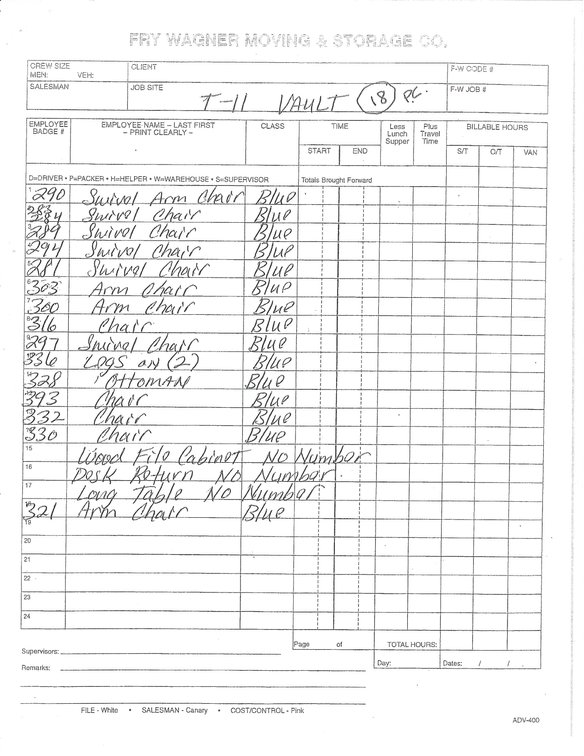 FRY WAGNER MOVING & STORAGE CO.
CREW SIZE
MEN: VEH:
CLIENT
F-W CODE #
SALESMAN
JOB SITE
F-W JOB #
T-11 VAULT (18) pc.
EMPLOYEE BADGE #
EMPLOYEE NAME – LAST FIRST
– PRINT CLEARLY –
CLASS
TIME
START END
Less Lunch Supper
Plus Travel Time
BILLABLE HOURS
S/T O/T VAN
D=DRIVER • P=PACKER • H=HELPER • W=WAREHOUSE • S=SUPERVISOR Totals Brought Forward
290 Swivel Arm Chair Blue
284 Swivel Chair Blue
289 Swivel Chair Blue
294 Swivel Chair Blue
281 Swivel Chair Blue
303 Arm Chair Blue
300 Arm Chair Blue
316 Chair Blue
297 Swivel Chair Blue
336 Legs on (2) Blue
328 Ottoman Blue
393 Chair Blue
332 Chair Blue
330 Chair Blue
15 Wood File Cabinet No Number
16 Desk Return No Number
17 Long Table No Number
321 Arm Chair Blue
19
20
21
22
23
24
Page of TOTAL HOURS:
Supervisors:
Day: Dates: / /
Remarks:
FILE - White • SALESMAN - Canary • COST/CONTROL - Pink
ADV-400